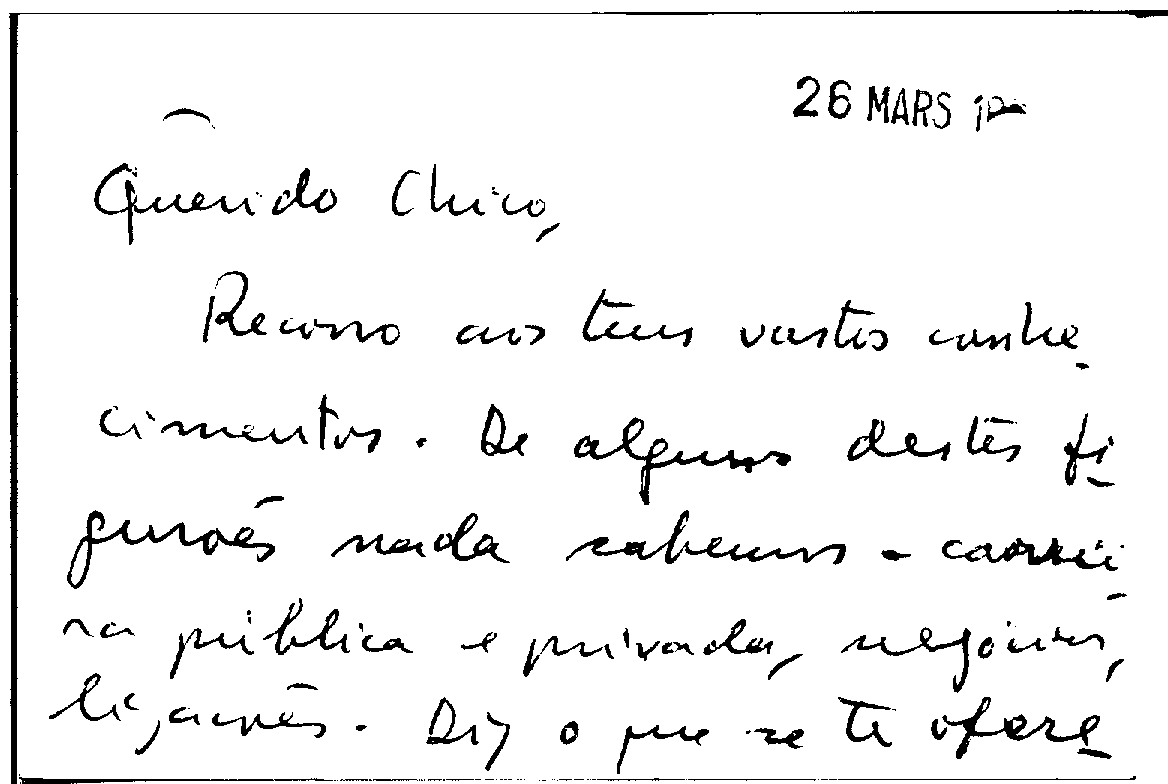 26 MARS
Querido Chico,
Recorro aos teus vastos conhe-
cimentos. De alguns destes fi-
gurões nada sabemos - carrei-
ra pública e privada, negócios,
ligações. Diz o que se te ofere-